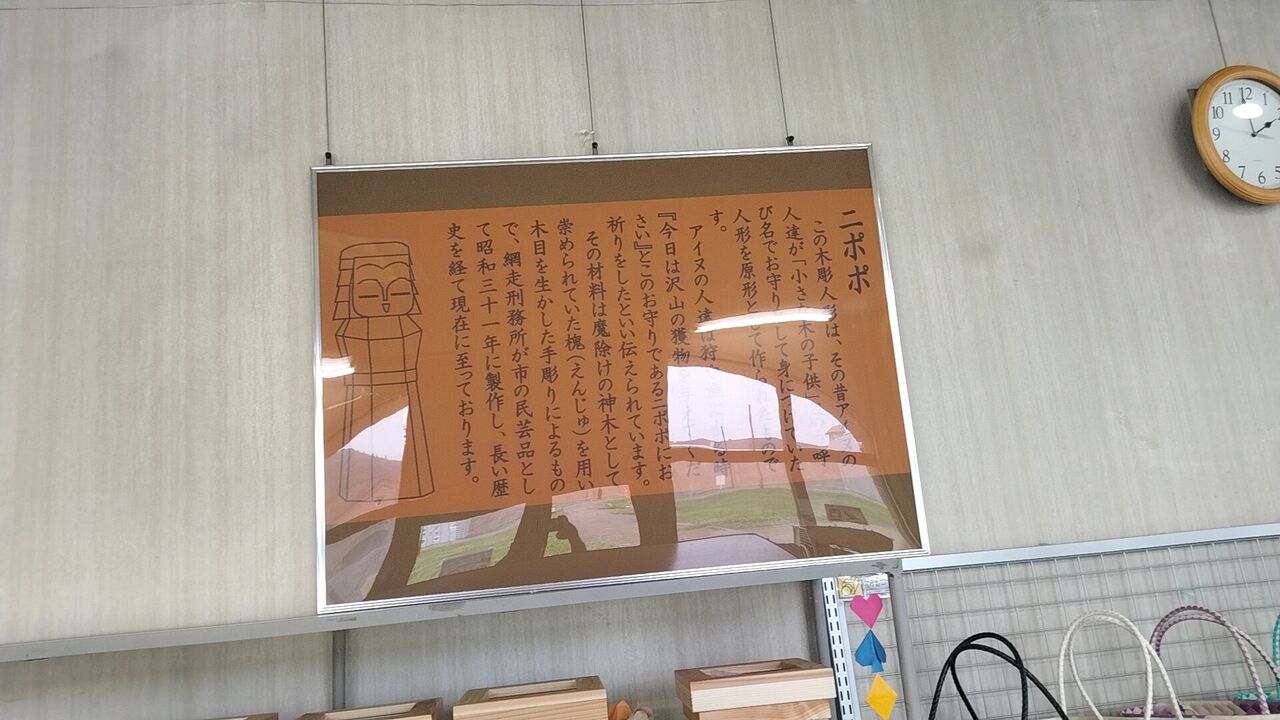 ニポポ
この木彫人形は、その昔アイヌの
人達が「小さな木の子供」呼
び名でお守りとして身につけていた
人形を原形として作られたもので
す。
アイヌの人達は狩る時
『今日は沢山の獲物を与えてくだ
さい』とこのお守りであるニポポにお
祈りをしたといい伝えられています。
その材料は魔除けの神木として
崇められていた槐（えんじゅ）を用い
木目を生かした手彫りによるもの
で、網走刑務所が市の民芸品とし
て昭和三十一年に製作し、長い歴
史を経て現在に至っております。
11 12 1
10
9
8
7 6 5